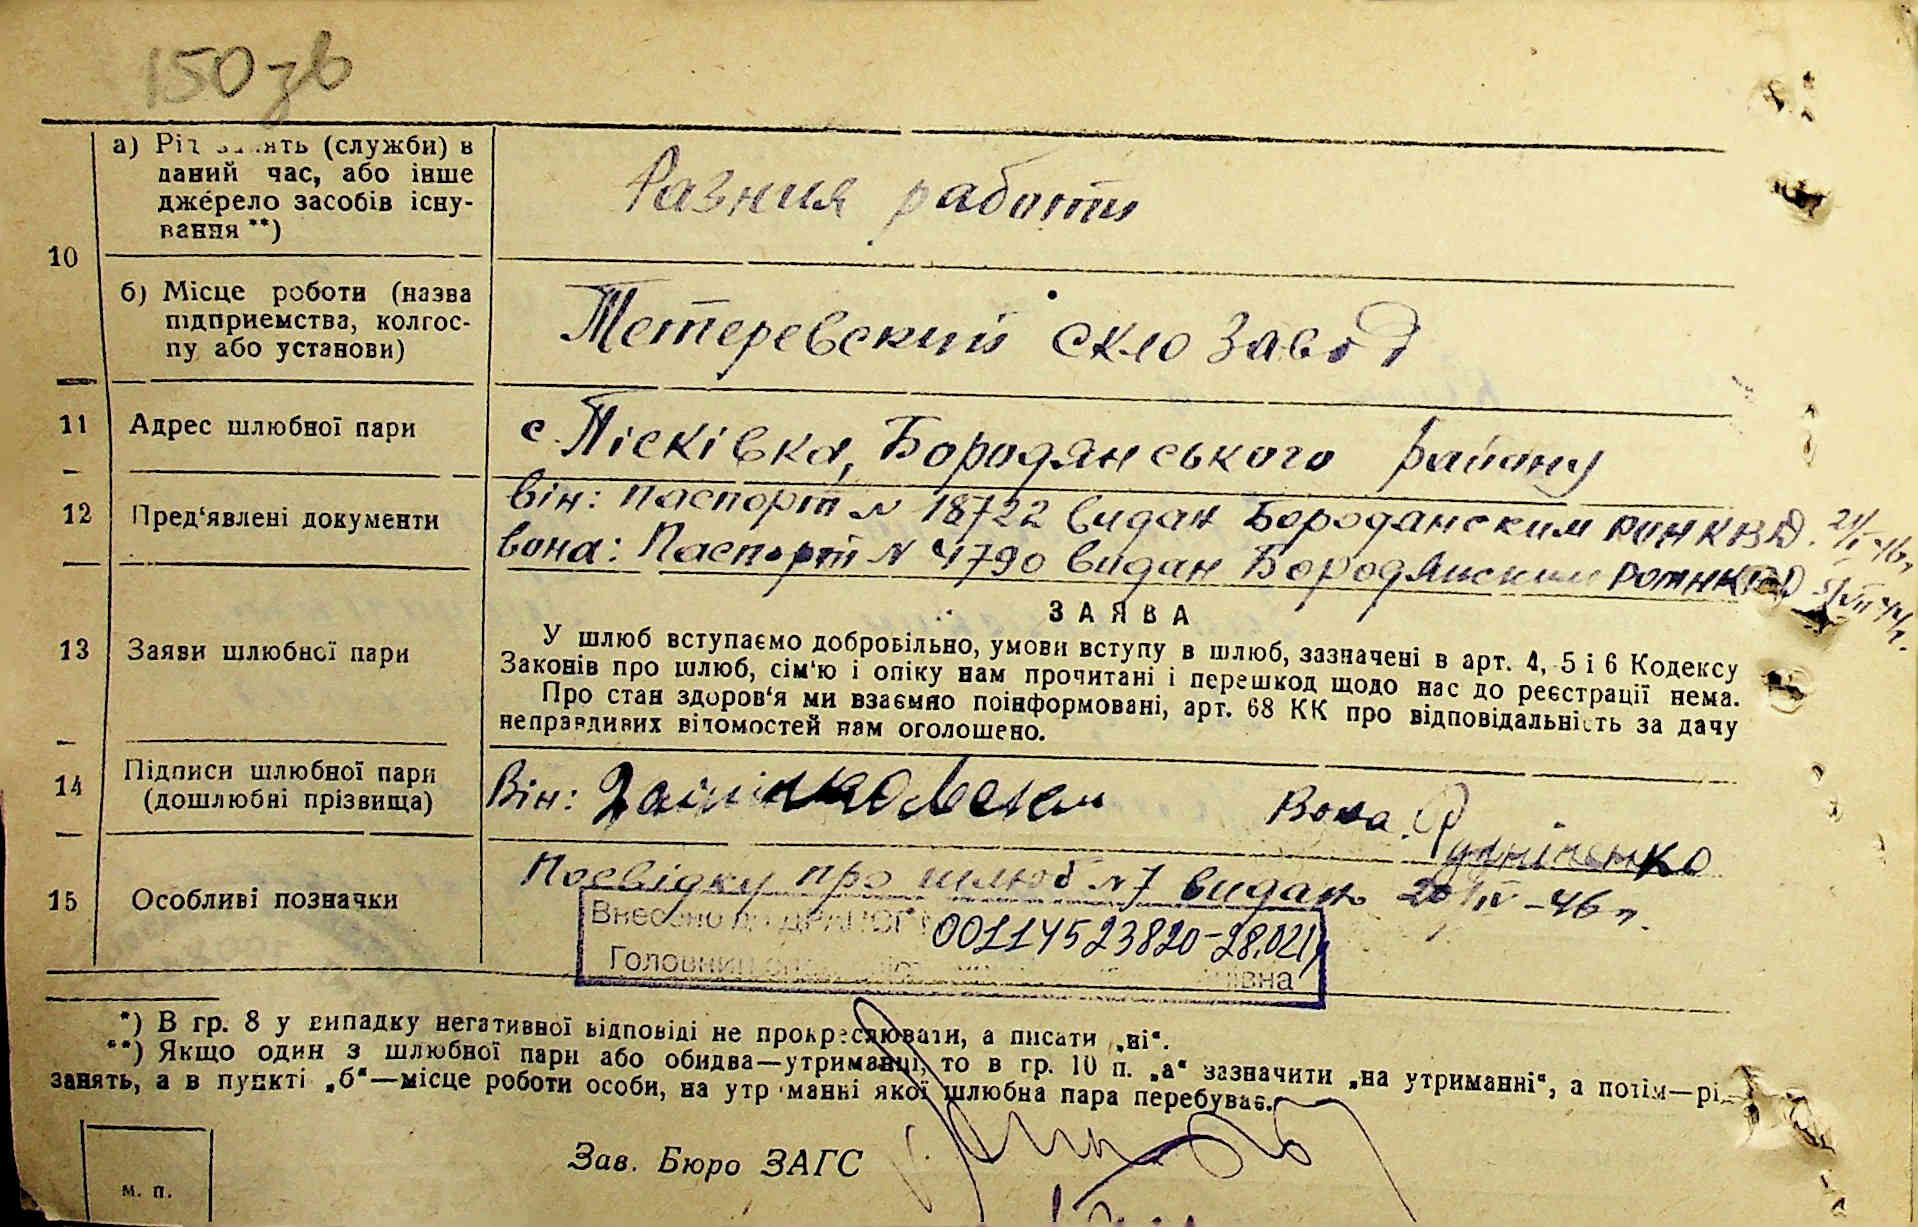 150 зв
а) Рід занять (служби) в
даний час, або інше
джерело засобів існу-
вання **)
Разния работи
10
б) Місце роботи (назва
підприємства, колгос-
пу або установи)
Тетеревский скло завод
11 Адрес шлюбної пари
с. Пісківка, Бородянського району
12 Пред‘явлені документи
він: паспорт N 18722 видан Бородянским РОНКВД.
вона: Паспорт N 4790 видан Бородянским РОНКВД
13 Заяви шлюбної пари
ЗАЯВА
У шлюб вступаємо добровільно, умови вступу в шлюб, зазначені в арт. 4, 5 і 6 Кодексу
Законів про шлюб, сім‘ю і опіку нам прочитані і перешкод щодо нас до реєстрації нема.
Про стан здоров‘я ми взаємно поінформовані, арт. 68 КК про відповідальність за дачу
неправдивих відомостей нам оголошено.
14 Підписи шлюбної пари
(дошлюбні прізвища)
Він: Вона.
15 Особливі позначки
Посвідку про шлюб N 7 видано 20/IV-46 г.
Внесено до ДРАЦСГ
00114523820-28.02
Головний
*) В гр. 8 у випадку негативної відповіді не прокреслювати, а писати „ні“.
**) Якщо один з шлюбної пари або обидва—утриманці, то в гр. 10 п. „а“ зазначити „на утриманні“, а потім—рід
занять, а в пункті „б“—місце роботи особи, на утриманні якої шлюбна пара перебуває.
Зав. Бюро ЗАГС
м. п.